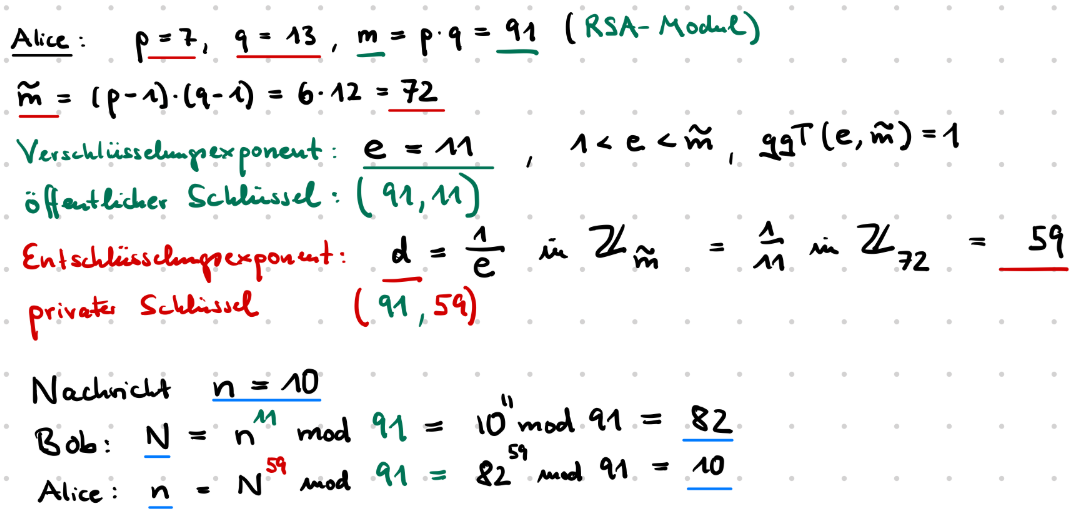 Alice: p = 7, q = 13, m = p·q = 91 (RSA-Modul)
m̃ = (p-1)·(q-1) = 6·12 = 72
Verschlüsselungsexponent: e = 11, 1 < e < m̃, ggT(e, m̃) = 1
öffentlicher Schlüssel: (91, 11)
Entschlüsselungsexponent: d = 1/e in ℤ_m̃ = 1/11 in ℤ_72 = 59
privater Schlüssel (91, 59)
Nachricht n = 10
Bob: N = n^11 mod 91 = 10^11 mod 91 = 82
Alice: n = N^59 mod 91 = 82^59 mod 91 = 10